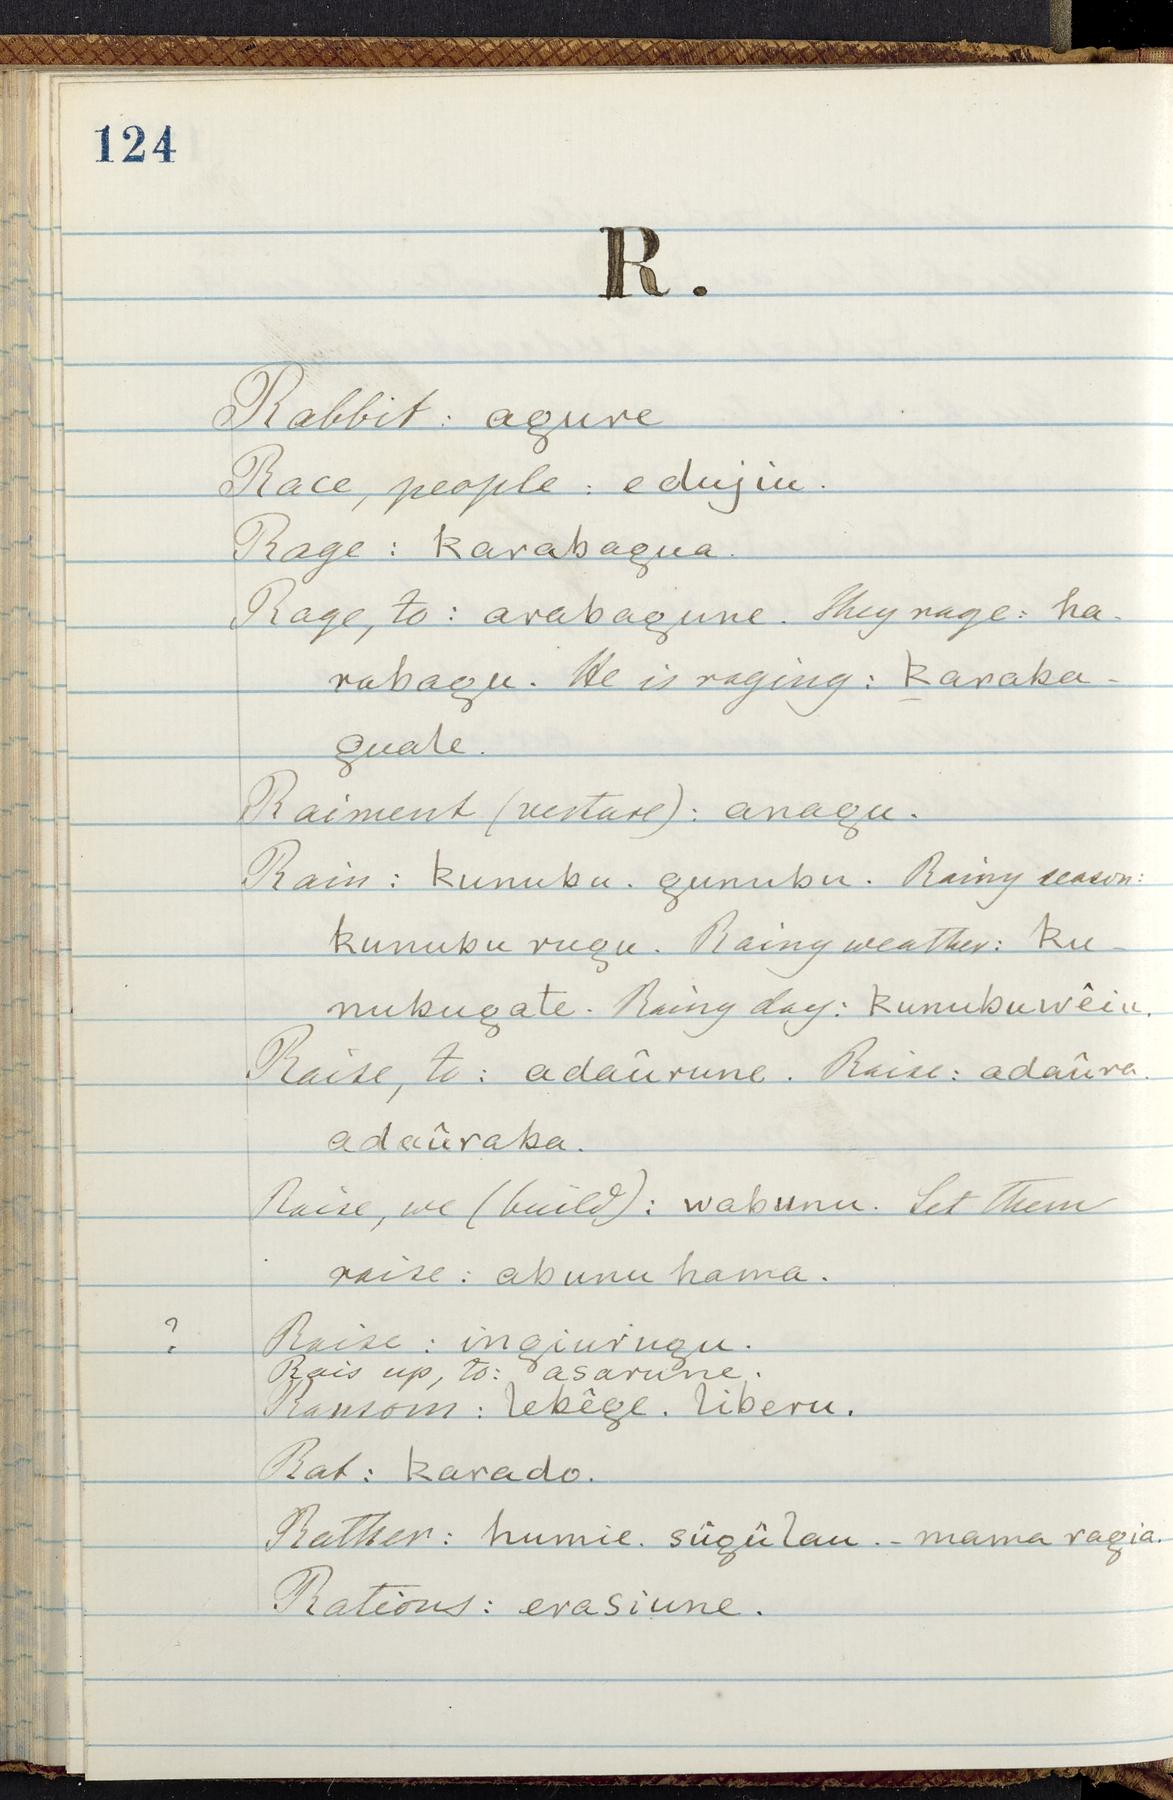 124
R.
Rabbit : agure
Race, people : edujiu.
Rage : karabagua.
Rage, to : arabagune. They rage : ha-
rabagu. He is raging : karaba-
guale.
Raiment (vesture) : anagu.
Rain : kunubu. gunubu. Rainy season:
kunubu rugu. Rainy weather : ku-
nubugate. Rainy day : kunubuwêiu.
Raise, to : adaûrune. Raise : adaûra.
adaûraba.
Raise, we (build) : wabunu. Let them
raise : abunu hama.
? Raise : ingiurugu.
Rais up, to : asarune.
Ransom : lebêge. liberu.
Rat : karado.
Rather : humie. sûgûlau. - mama ragia.
Rations : erasiune.